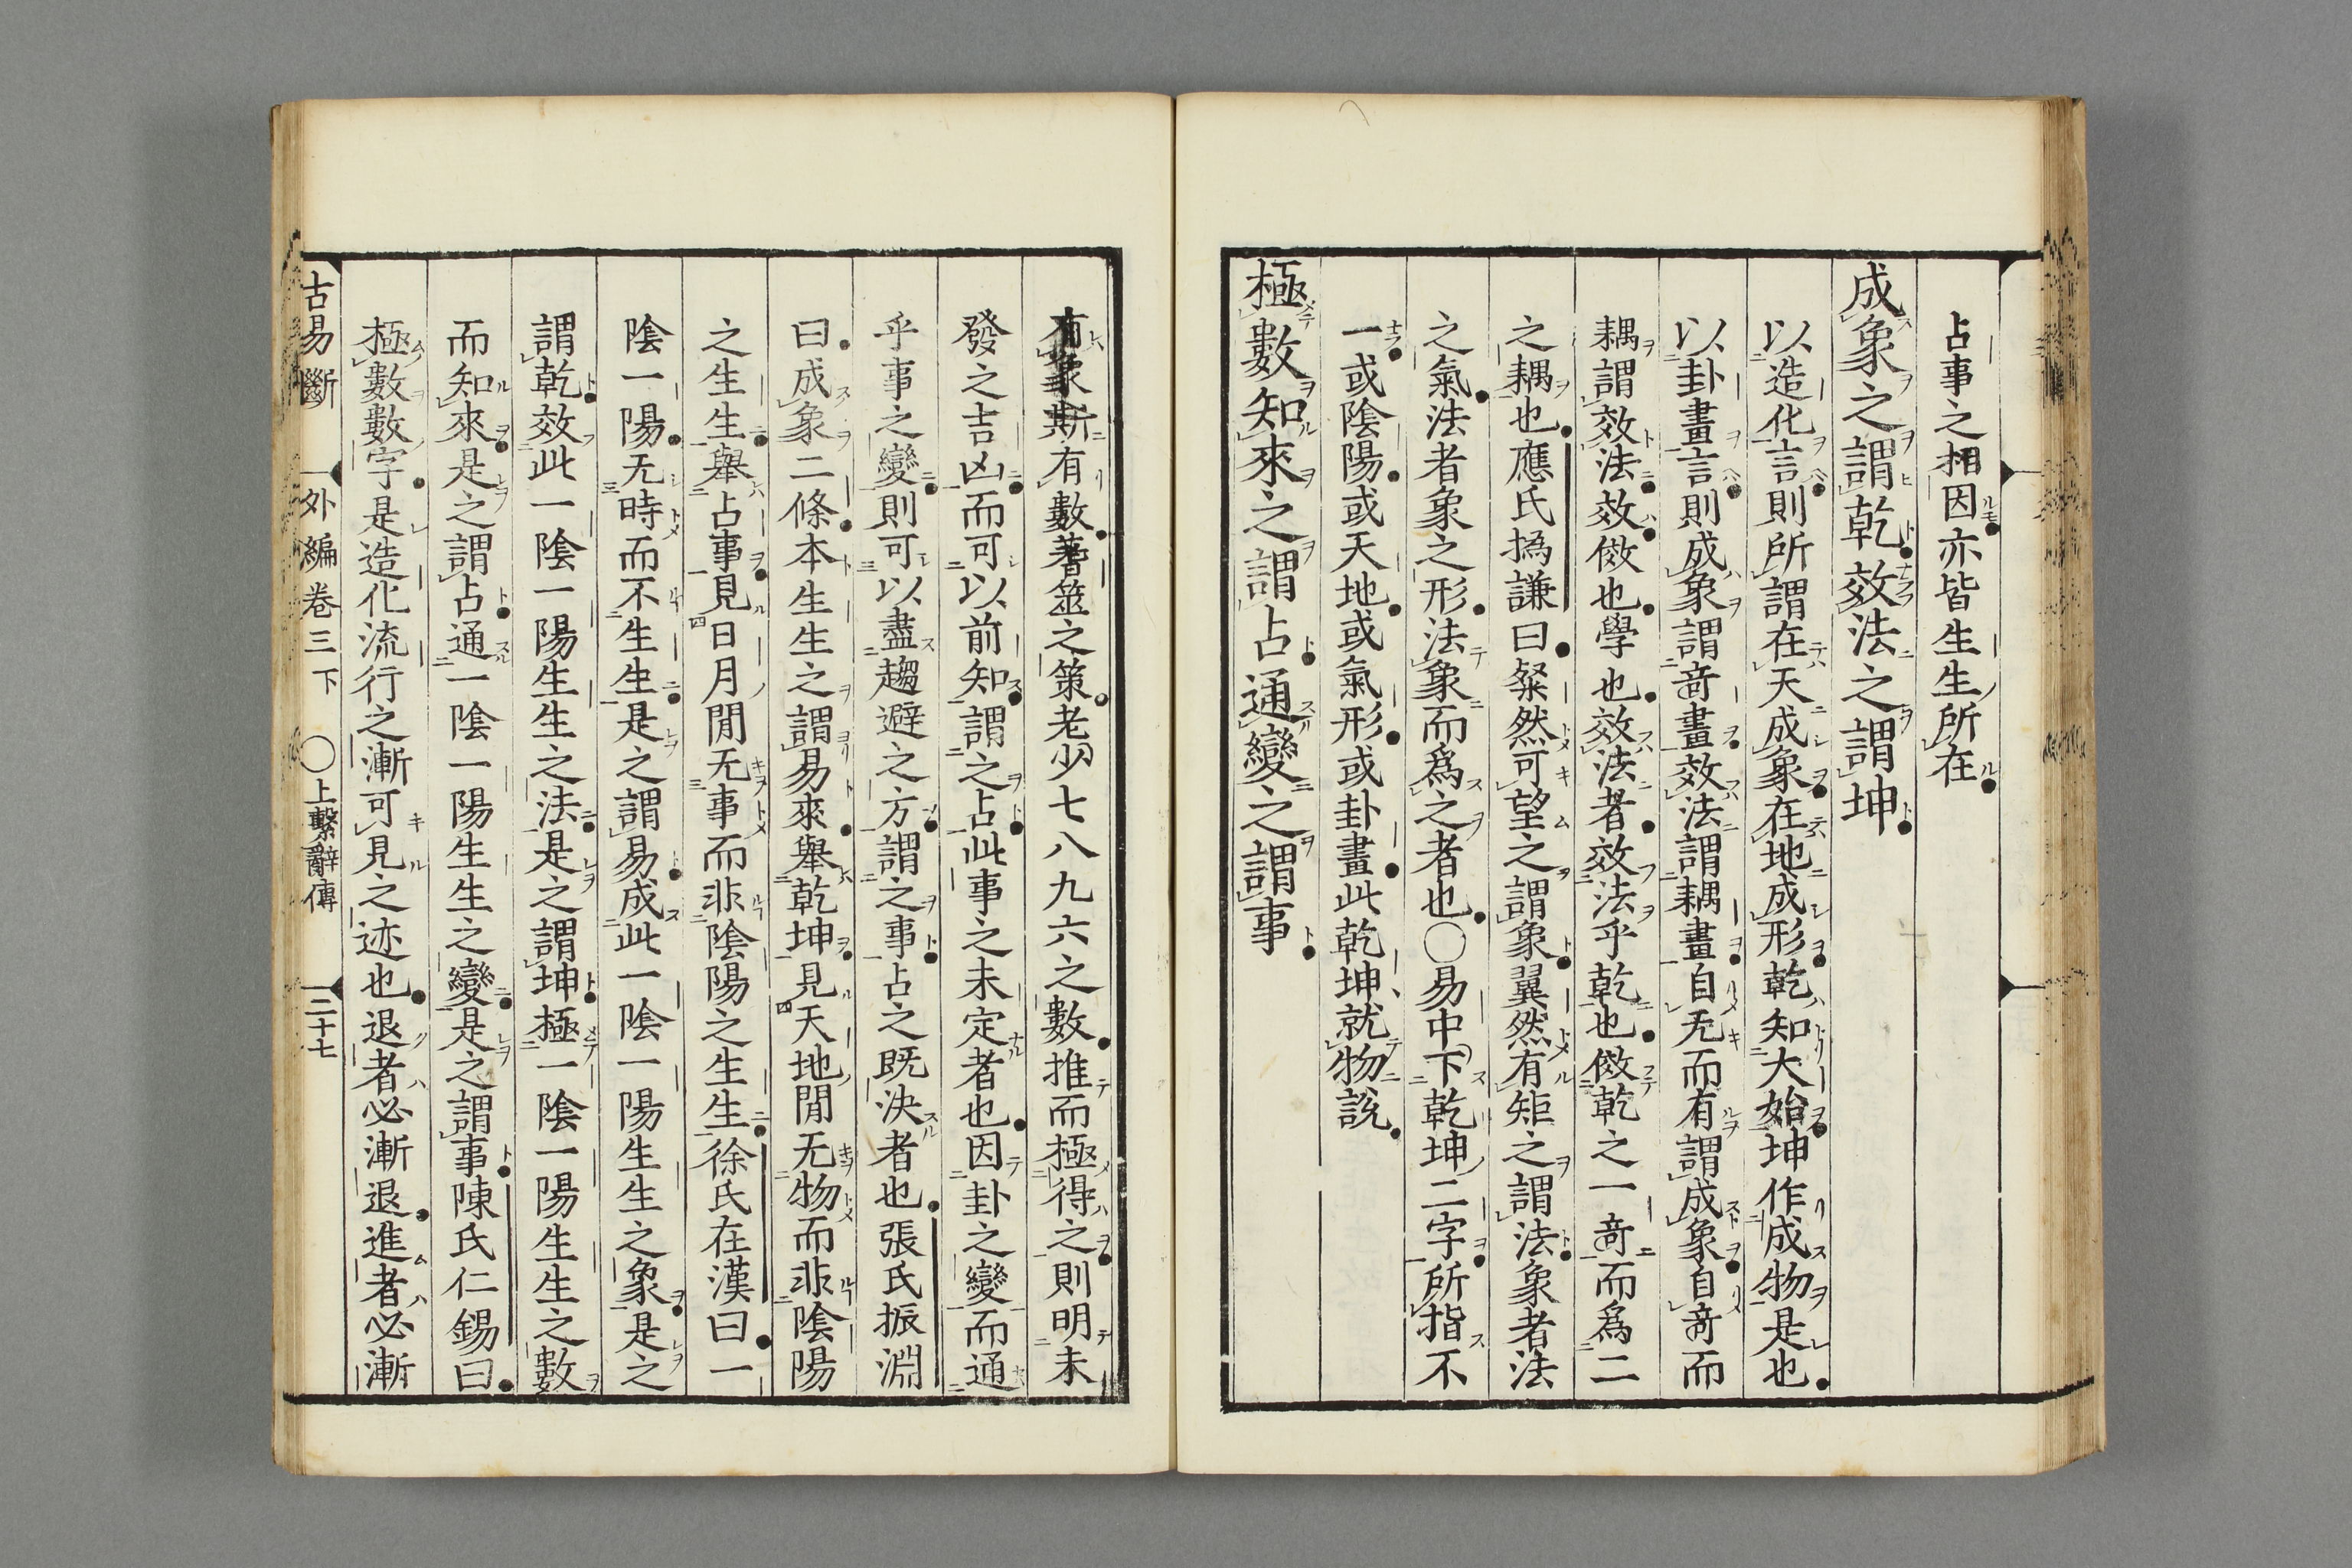 占事之相因亦皆生生所在
成象之謂乾效法之謂坤
以造化言則所謂在天成象在地成形乾知大始坤作成物是也
以卦畫言則成象謂竒畫效法謂耦畫自无而有謂成象自竒而
耦謂效法效傚也學也效法者效法乎乾也傚乾之一竒而爲二
之耦也應氏撝謙曰粲然可望之謂象翼然有矩之謂法象者法
之氣法者象之形法象而爲之者也〇易中下乾坤二字所指不
一或陰陽或天地或氣形或卦畫此乾坤就物説
極數知來之謂占通變之謂事
有象斯有數蓍筮之策老少七八九六之數推而極得之則明未
發之吉凶而可以前知謂之占此事之未定者也因卦之變而通
乎事之變則可以盡趨避之方謂之事占之既決者也張氏振淵
曰成象二條本生生之謂易來舉乾坤見天地閒无物而非陰陽
之生生舉占事見日月閒无事而非陰陽之生生徐氏在漢曰一
陰一陽无時而不生生是之謂易成此一陰一陽生生之象是之
謂乾效此一陰一陽生生之法是之謂坤極一陰一陽生生之數
而知來是之謂占通一陰一陽生生之變是之謂事陳氏仁錫曰
極數數字是造化流行之漸可見之迹也退者必漸退進者必漸
古易斷 外編卷三下 〇上繫辭傳 二十七